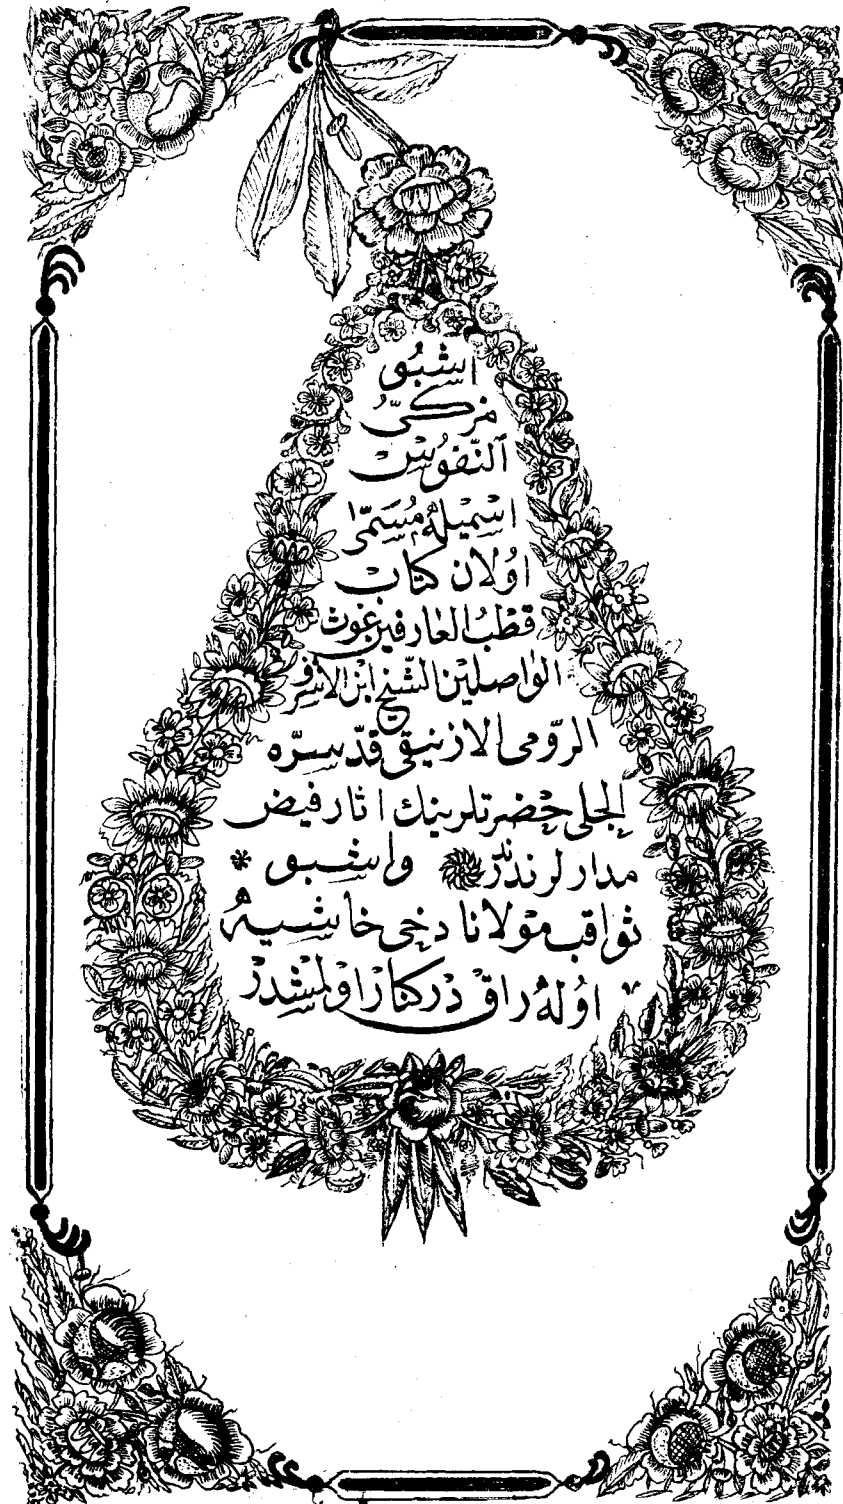 اشبو
مزكّىُ
النّفوس
اسميله مُسَمّى
اولان كتاب
قطبُ العارفين غوث
الواصلين الشّيخ ابن الاشرف
الرّومى الازنيقى قدّسسرّه
الجلى حضرتلرينك اثار فيض
مدار لرندندر ۞ واشبو *
ثواقب مولانا دخى حاشيه
اوله راق دركنار اولمشدر